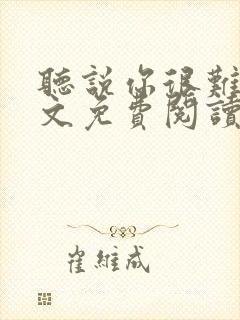 聽說你很難
文免費閱讀
崔維成